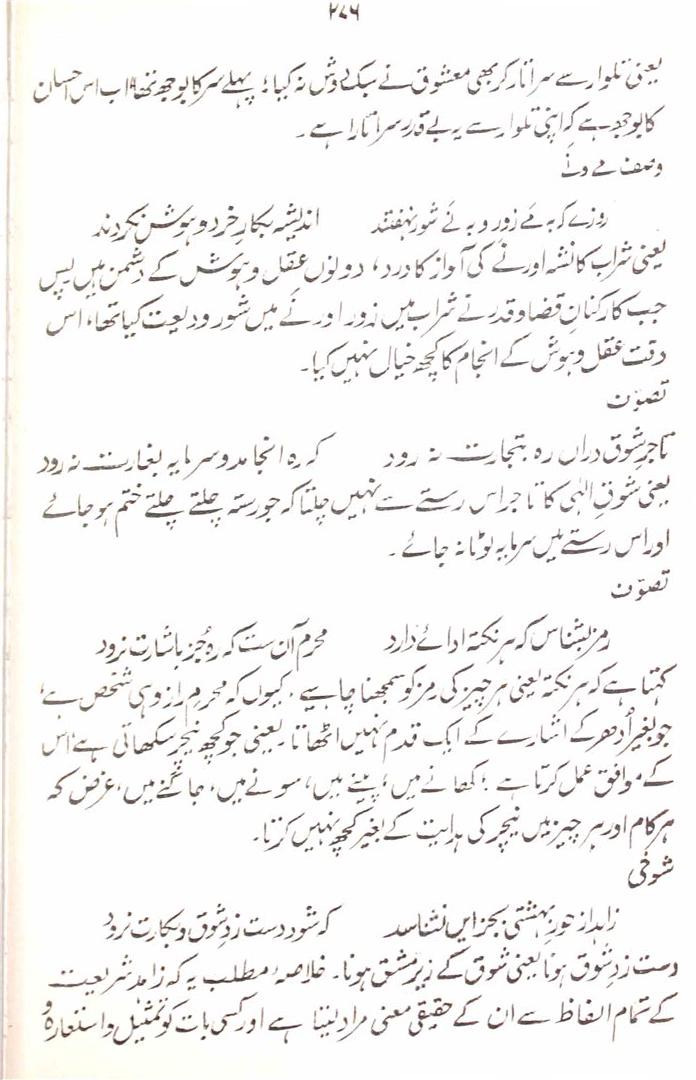 ۲۷۶
یعنی تلوار سے سر اتار کر بھی معشوق نے سبک دوش نہ کیا؛ پہلے سر کا بوجھ تھا، اب اس احسان
کا بوجھ ہے کہ اپنی تلوار سے یہ بے قدر سر اتارا ہے۔
وصف مے و نے
روزے کہ بہ مے زور و بہ نے شور نہفتند اندیشہ بکارِ خرد و ہوش نکردند
یعنی شراب کا نشہ اور نے کی آواز کا درد، دونوں عقل و ہوش کے دشمن ہیں پس
جب کارکنانِ قضا و قدر نے شراب میں زور اور نے میں شور ودیعت کیا تھا، اس
وقت عقل و ہوش کے انجام کا کچھ خیال نہیں کیا۔
تصوّف
تاجرِ شوق دراں رہ بتجارت نہ رود کہ رہ انجامد و سرمایہ بغارت نہ رود
یعنی شوقِ الٰہی کا تاجر اس رستے سے نہیں چلتا کہ جو رستہ چلتے چلتے ختم ہو جائے
اور اس رستے میں سرمایہ لوٹا نہ جائے۔
تصوّف
رمز بشناس کہ ہر نکتہ ادائے دارد محرم آن ست کہ رہ جز باشارت نرود
کہتا ہے کہ ہر نکتہ یعنی ہر چیز کی رمز کو سمجھنا چاہیے۔ کیوں کہ محرمِ راز وہی شخص ہے،
جو بغیر اُدھر کے اشارے کے ایک قدم نہیں اٹھاتا۔ یعنی جو کچھ نیچر سکھاتی ہے، اس
کے موافق عمل کرتا ہے؛ کھانے میں، پینے میں، سونے میں، جاگنے میں، غرض کہ
ہر کام اور ہر چیز میں نیچر کی ہدایت کے بغیر کچھ نہیں کرتا۔
شوخی
زاہد از حورِ بہشتی بجز ایں نشناسد کہ شود دست زدِ شوق و بکارت نرود
دست زدِ شوق ہونا یعنی شوق کے زیرِ مشق ہونا۔ خلاصہ مطلب یہ کہ زاہد شریعت
کے تمام الفاظ سے ان کے حقیقی معنی مراد لیتا ہے اور کسی بات کو تمثیل و استعارہ و